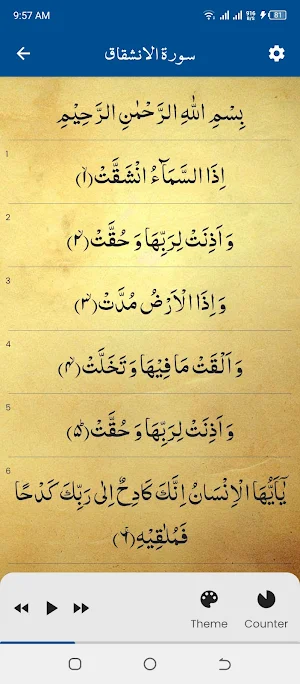 9:57 AM
916 B/s 81
سورة الانشقاق
بِسْمِ اللّٰهِ الرَّحْمٰنِ الرَّحِيْمِ
1
اِذَا السَّمَآءُ انْشَقَّتْۙ(۱)
2
وَ اَذِنَتْ لِرَبِّهَا وَ حُقَّتْۙ(۲)
3
وَ اِذَا الْاَرْضُ مُدَّتْۙ(۳)
4
وَ اَلْقَتْ مَا فِیْهَا وَ تَخَلَّتْۙ(۴)
5
وَ اَذِنَتْ لِرَبِّهَا وَ حُقَّتْؕ(۵)
6
یٰۤاَیُّهَا الْاِنْسَانُ اِنَّكَ كَادِحٌ اِلٰى رَبِّكَ كَدْحًا
فَمُلٰقِیْهِۚ(۶)
Theme Counter